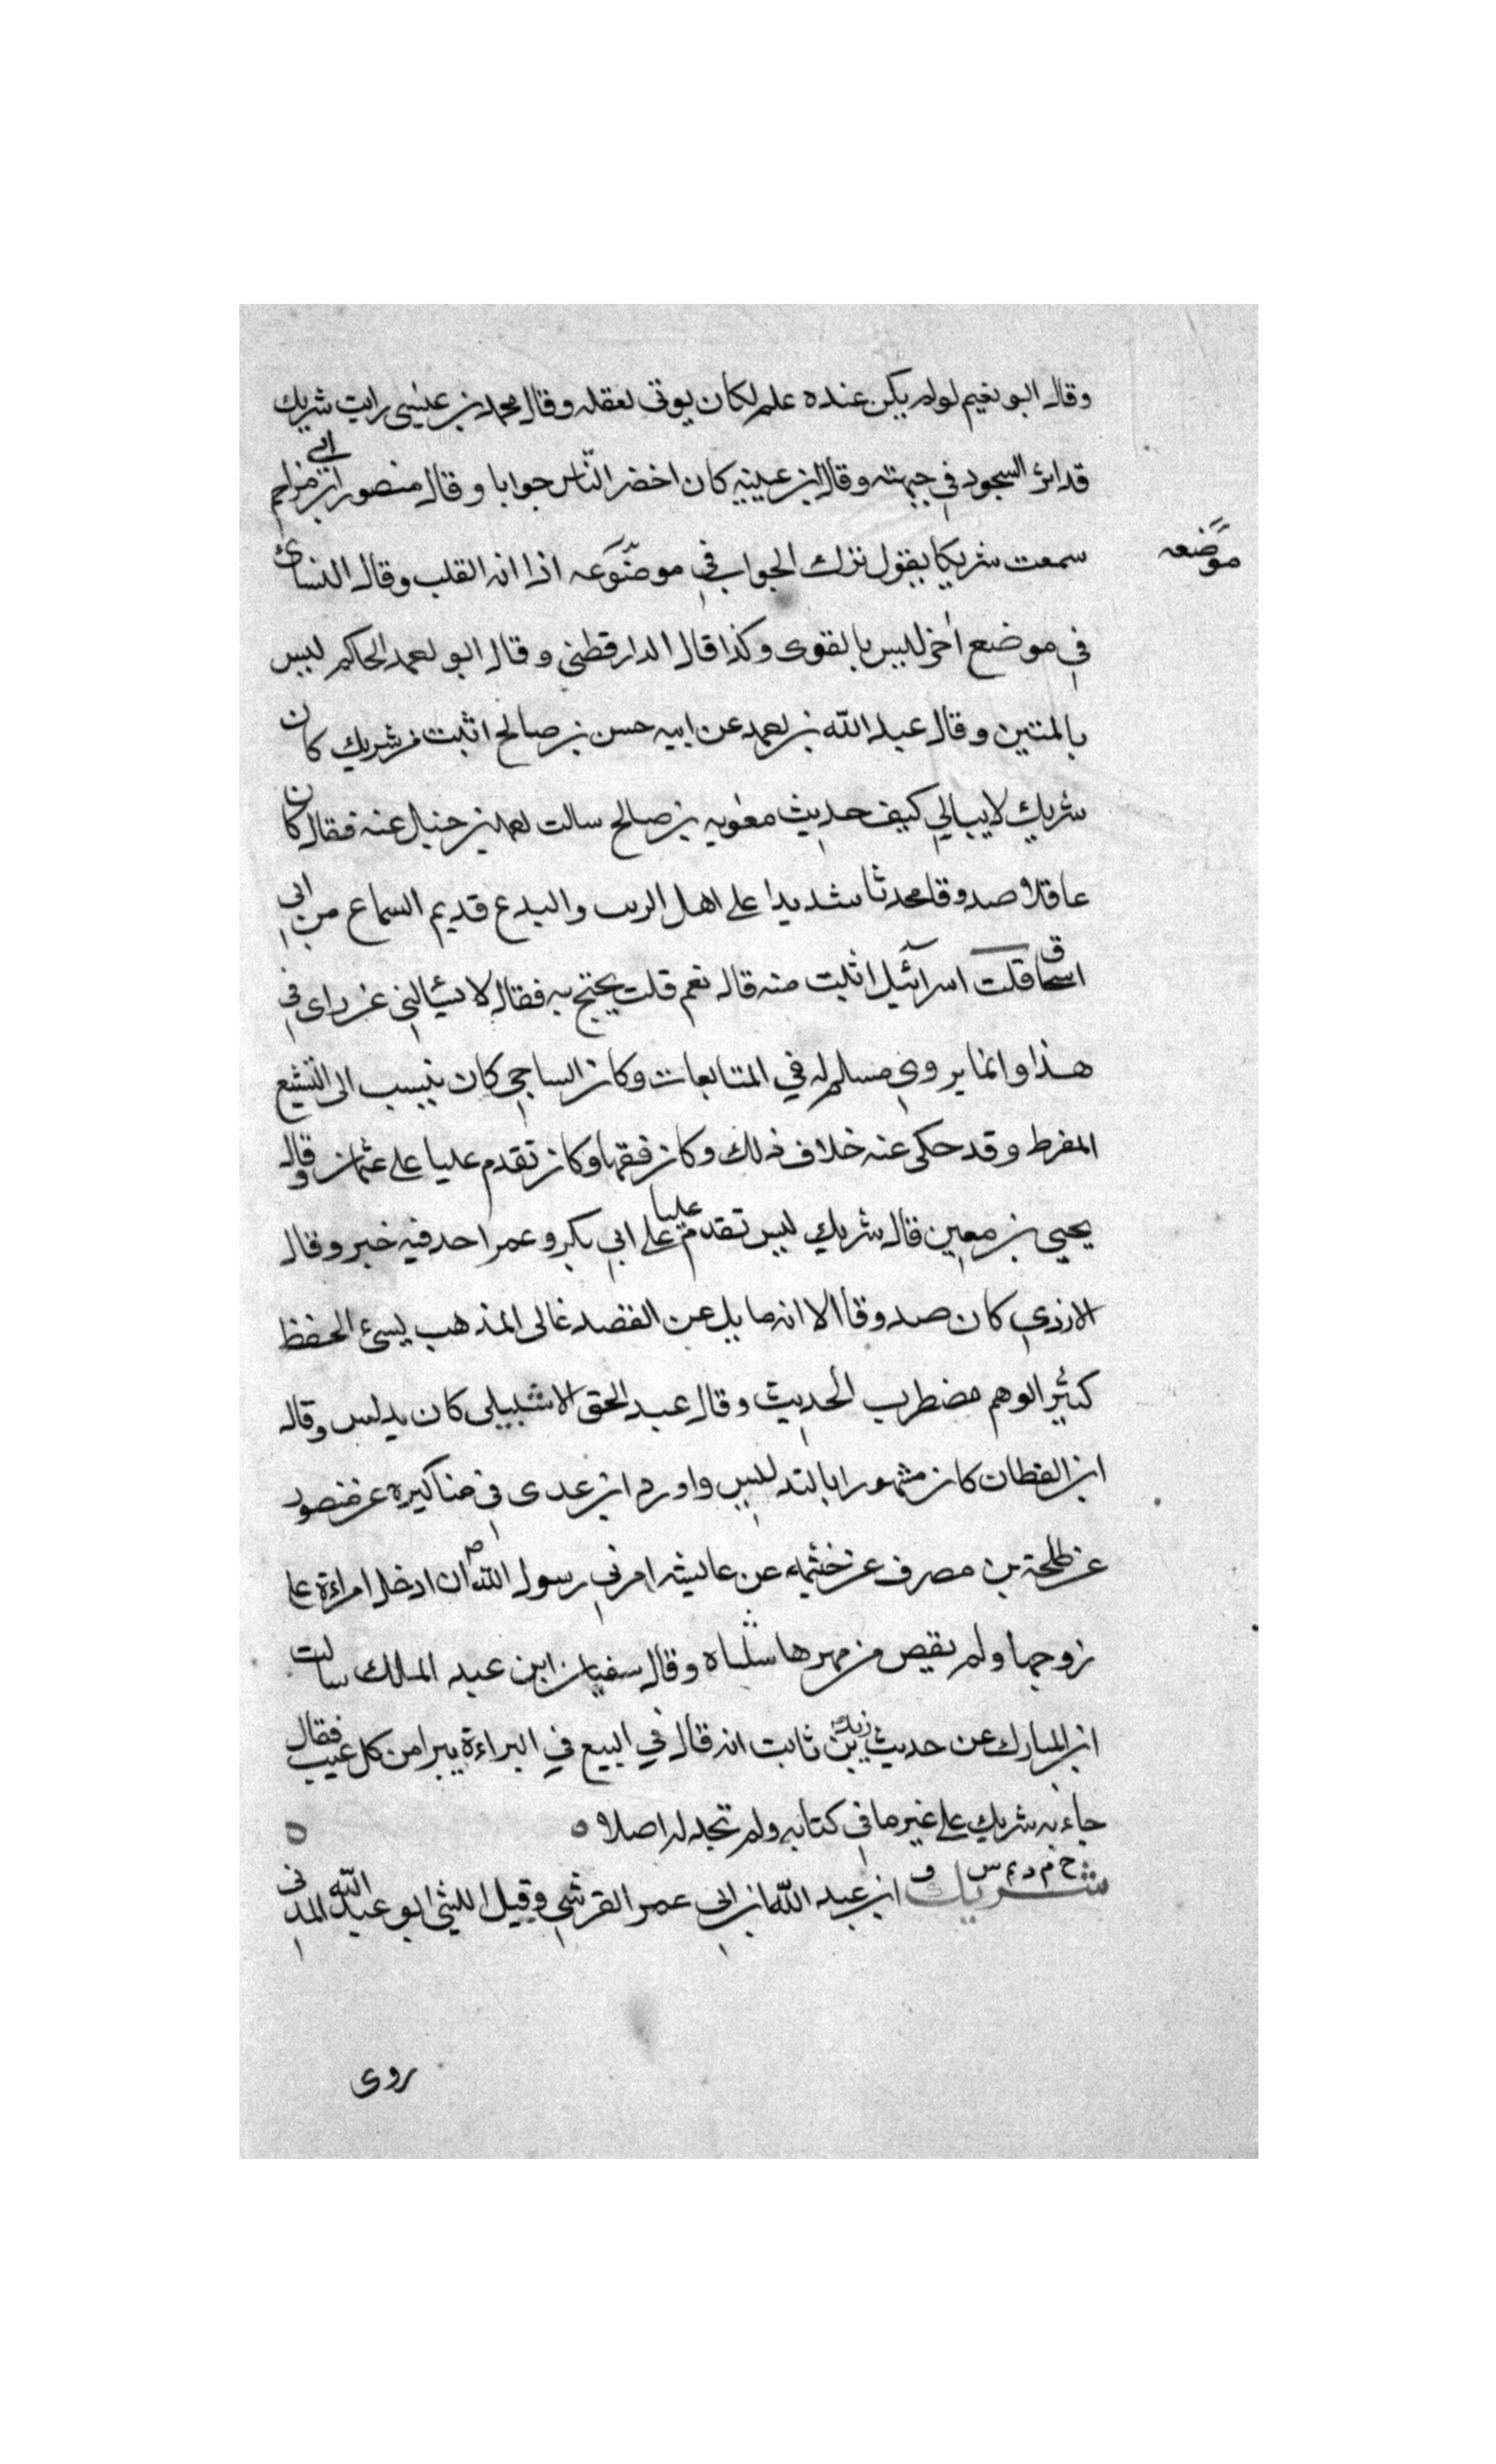 وقال ابو نعيم لو لم يكن عنده علم لكان يوتى لعقله وقال محمد بن عيسى رايت شريك
قد اثر السجود في جبهته وقال ابن عيينه كان احضر الناس جوابا وقال منصور ابن ابي مزاحم
سمعت شريكا يقول ترك الجواب في موضوعه اذا انه القلب وقال النسائ
موضعه
في موضع اخر ليس بالقوى وكذا قال الدارقطني وقال ابو احمد الحاكم ليس
بالمتين وقال عبد الله بن احمد عن ابيه حسن بن صالح اثبت من شريك كان
شريك لا يبالي كيف حديث معويه بن صالح سالت احمد بن حنبل عنه فقال كان
عاقلا صدوقا محدثا شديدا على اهل الريب والبدع قديم السماع من ابي
اسحاق قلت اسرائيل اثبت منه قال نعم قلت يحتج به فقال لا تسئالني عن راى في
هذا وانما يروي مسلم له في المتابعات وكان الساجي كان ينسب الى التشيع
المفرط وقد حكى عنه خلاف ذلك وكان فقيها وكان تقدم عليا على عثمان وقال
يحيى بن معين قال شريك ليس تقدم عليا على ابي بكر وعمر احد فيه خير وقال
الازدي كان صدوقا الا انه مايل عن القصد غالى المذهب يسئ الحفظ
كثير الوهم مضطرب الحديث وقال عبد الحق الاشبيلى كان يدلس وقال
ابن القطان كان مشهورا بالتدليس واورد ابن عدى في مناكيره عن منصور
عن طلحة بن مصرف عن خثيمه عن عايشه امرني رسول الله ص ان ادخل امراءة على
زوجها ولم يقبض من مهرها شئاه وقال سفيان ابن عبد الملك سالت
ابن المبارك عن حديث زيد بن ثابت انه قال في البيع في البراءة يبرا من كل عيب فقال
جاء به شريك على غير ما في كتابه ولم تجد له اصلا ه ه
خ م د تم س ق
شريك ابن عبد الله ابن ابي عمر القرشي وقيل الليثي ابو عبد الله المدني
روى